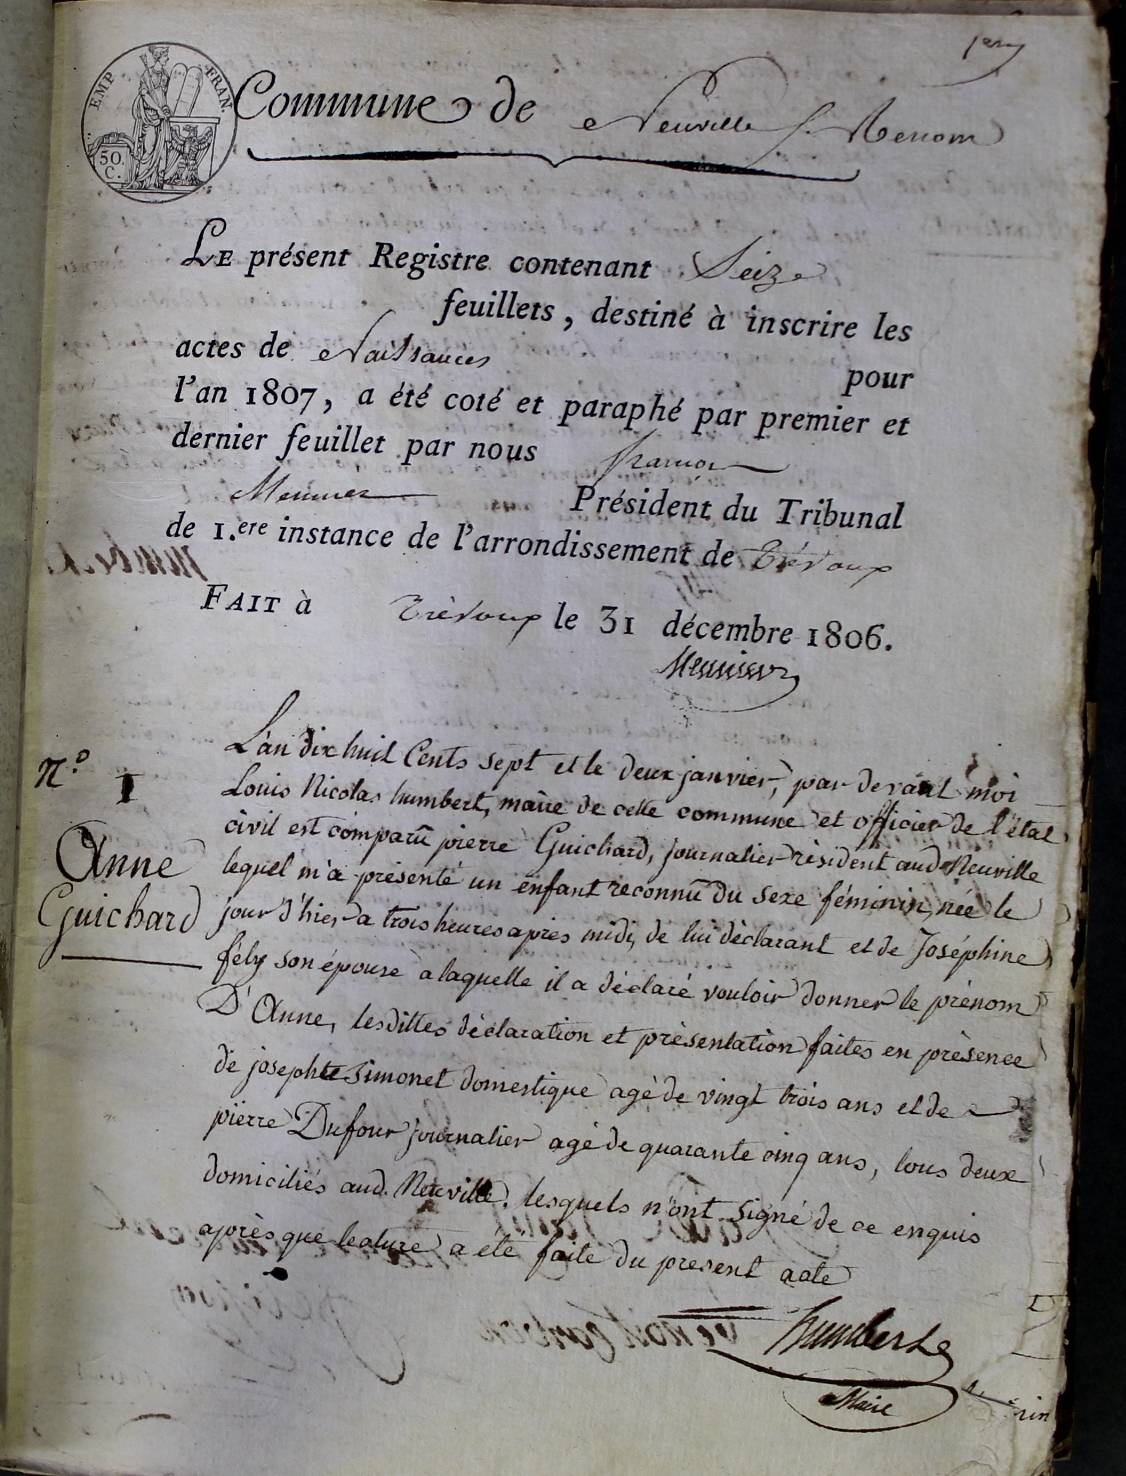 1er
EMP. FRAN.
50.
C.
Commune de Neuville s. Renom
Le présent Registre contenant Seize
feuillets, destiné à inscrire les
actes de Naissances pour
l'an 1807, a été coté et paraphé par premier et
dernier feuillet par nous françois
Meunier Président du Tribunal
de 1.ere instance de l'arrondissement de Trévoux
FAIT à Trévoux le 31 décembre 1806.
Meunier
N.º 1
Anne
Guichard
L'an dix huit Cents sept et le deux janvier, par devant moi
Louis Nicolas humbert, maire de cette commune et officier de l'état
civil est comparû pierre Guichard, journalier résident aud Neuville
lequel m'a présenté un enfant reconnû du sexe féminin, née le
jour d'hier a trois heures après midi, de lui déclarant et de Joséphine
fély son épouse a laquelle il a déclaré vouloir donner le prénom
D'Anne, lesdittes déclaration et présentation faites en présence
de josephte Simonet domestique agé de vingt trois ans et de
pierre Dufour journalier agé de quarante cinq ans, tous deux
domiciliés aud. Neuville. lesquels n'ont signé de ce enquis
après que lecture a été faite du present acte
humbert
Maire